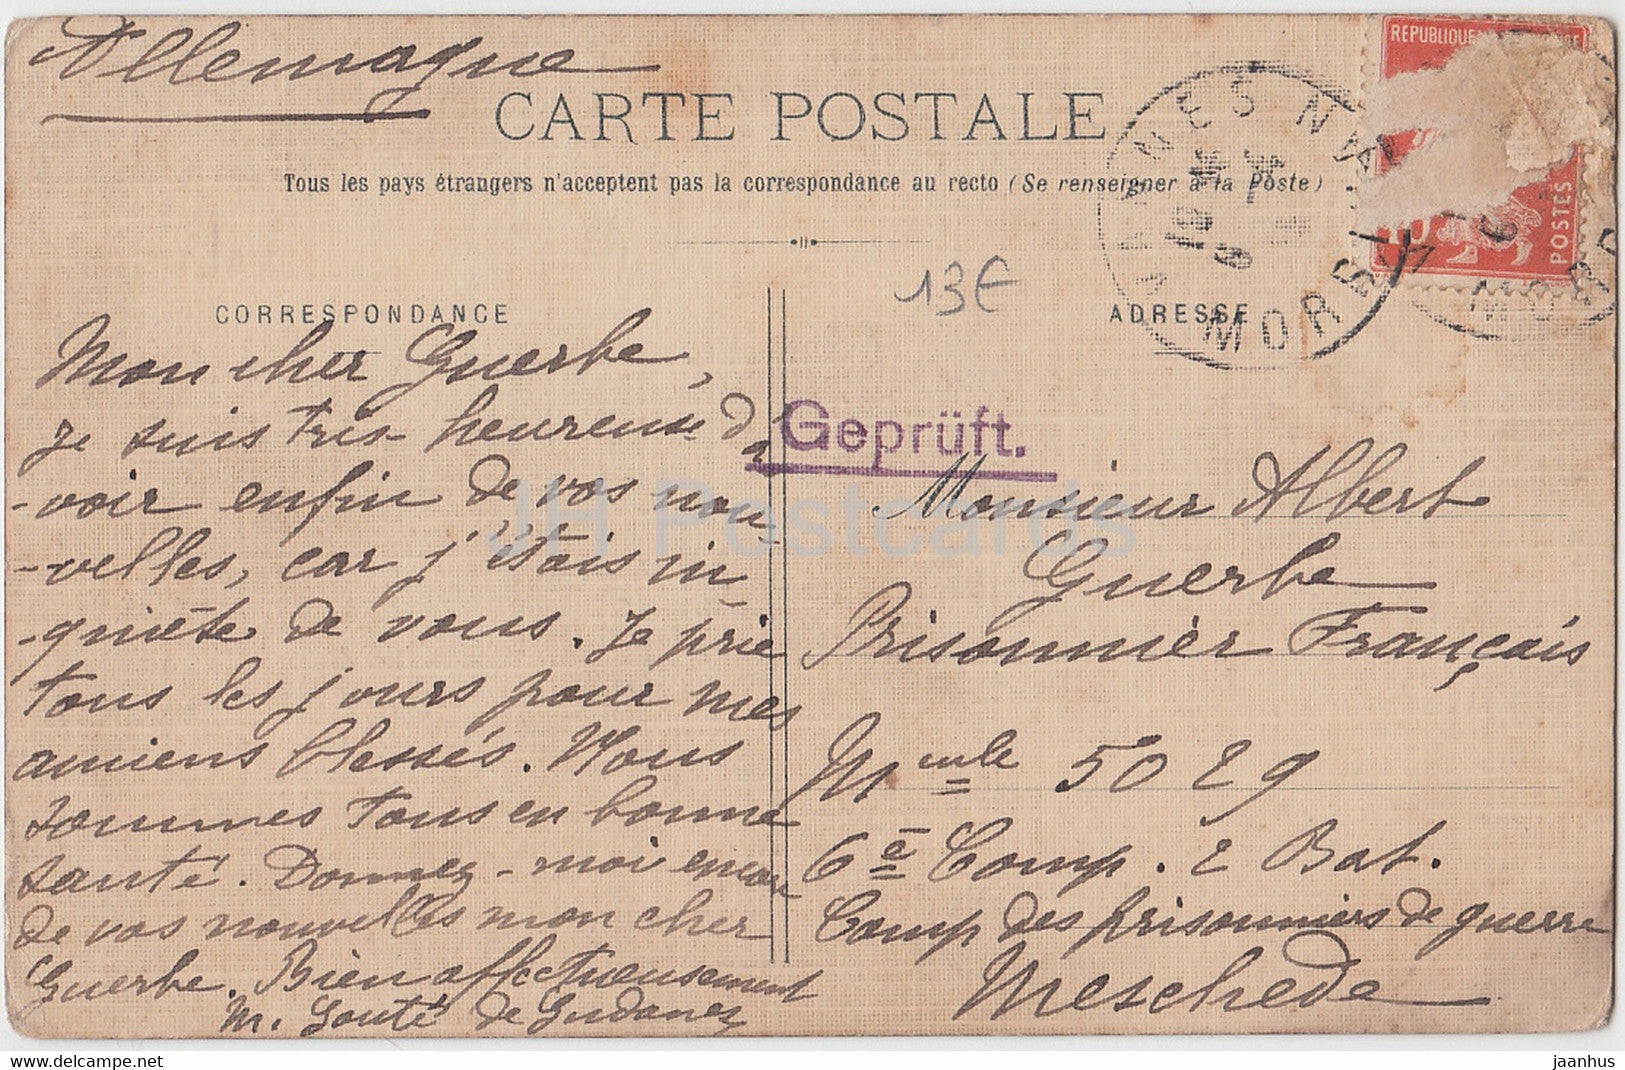 Allemagne
CARTE POSTALE
Tous les pays étrangers n'acceptent pas la correspondance au recto (Se renseigner à la Poste)
REPUBLIQUE
10
POSTES
VANNES
MORBIHAN
13€
CORRESPONDANCE
Mon cher Guerbe,
je suis très heureuse d'a
-voir enfin de vos nou-
-velles, car j'étais in-
-quiète de vous. Je prie
tous les jours pour mes
amiens blessés. Nous
sommes tous en bonne
santé. Donnez-moi encore
de vos nouvelles mon cher
Guerbe. Bien affectueusement
ADRESSE
Geprüft.
Monsieur Albert
Guerbe
Prisonnièr Français
Mmle 5029
6e Comp. 2 Bat.
Camp des prisonniers de guerre
Meschede
JH Postcards
https://www.delcampe.net
jaanhus